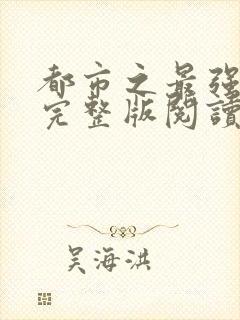 都市之最强
完整版閱讀
吴海洪